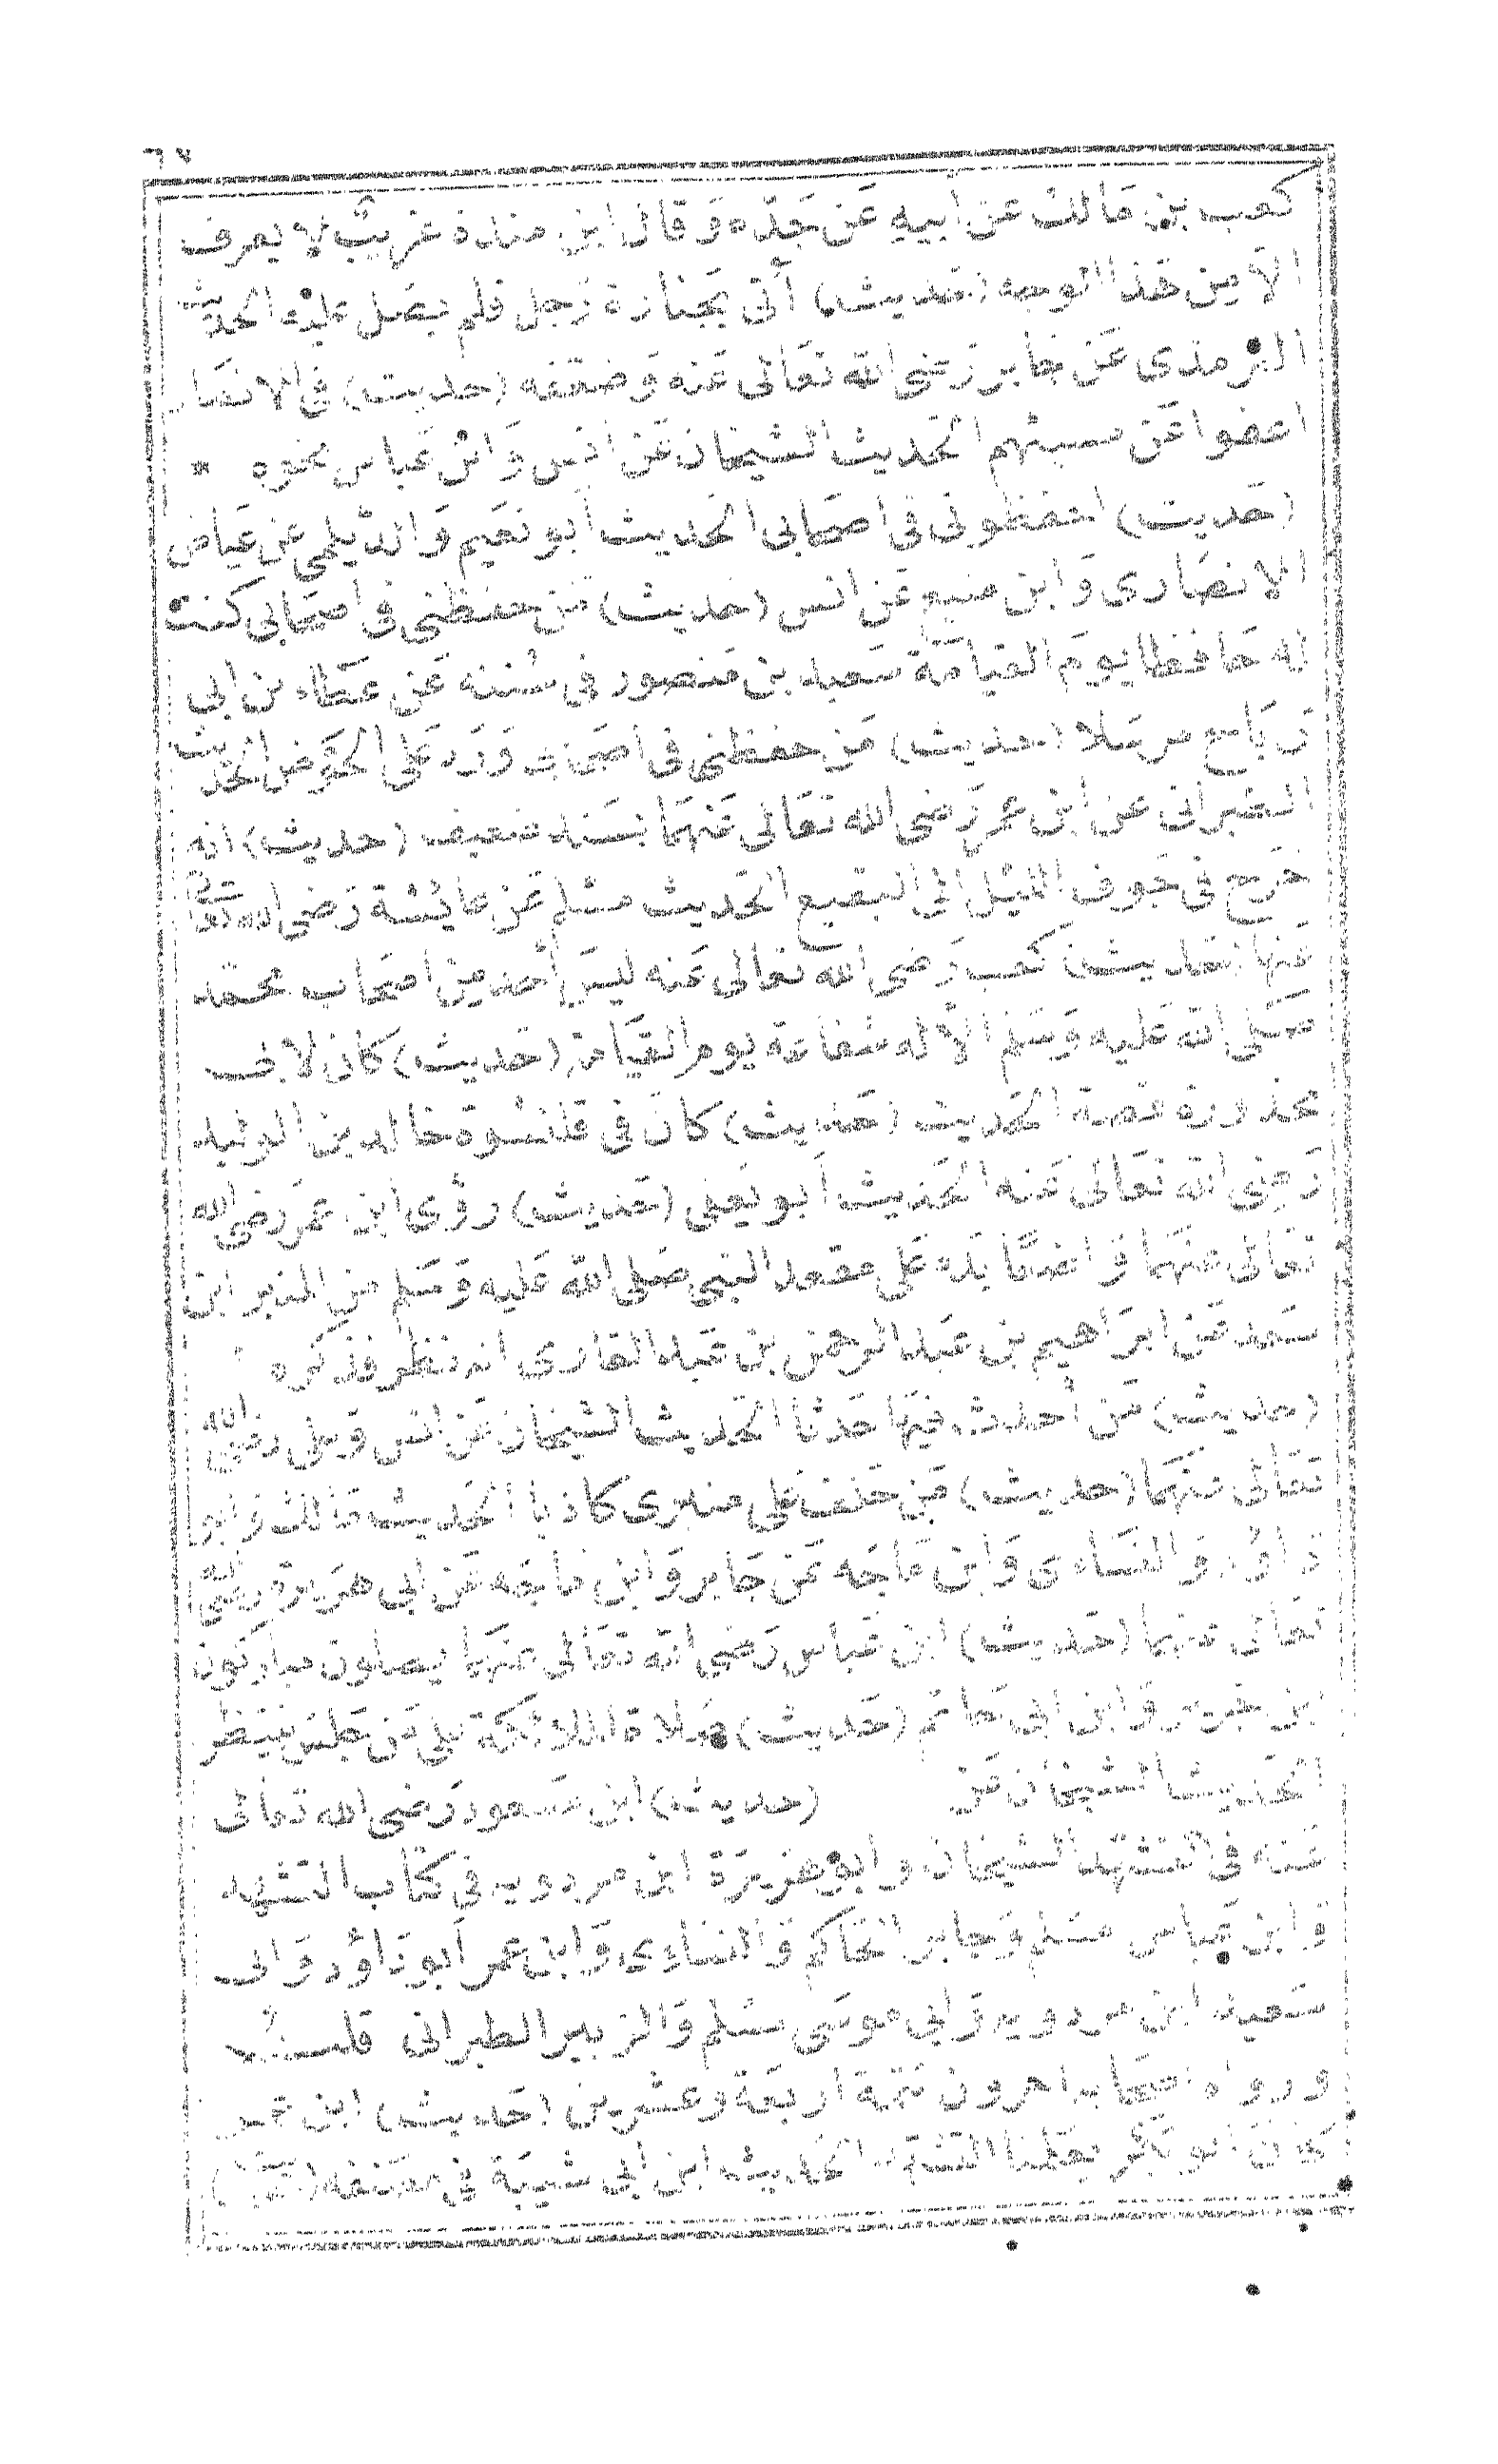 ٦٧
كعب بن مَالك عن أبيهِ عَن جَدّه وَقال ابن مندة غريبٌ لا يعرف
الاّ من هَذا الوجه (حَديث) أتى بجَنازة رَجل فلم يصَل عليْه الحديث
الترمذى عَن جَابر رَضى الله تعَالى عَنه وَضعّفه (حديث) فى الانصَار
اعفوا عَن مسيئهم الحَديث الشيخان عَن انس وَابن عَباس نحوه *
(حَديث) احفظونى فى اصحَابى الحَديث أبو نعَيم وَالدّيلمى عن عيَاض
الانصَارى وَابن منيع عَن انس (حَديث) مَن حفظنى فى اصحَابى كنت
له حَافظا يومَ القيَامَة سَعيد بن مَنصور فى سُننه عَن عَطاء بن ابى
رَبَاح مرسَلا (حديث) مَن حفظنى فى اصحَابى وَرَد عَلى الحَوَض الحَديث
الطبرانى عن ابن عمر رَضى الله تعَالى عَنهمَا بسَند ضعيف (حديث) انه
خَرج فى جَوف الليْل الى البقيع الحَديث مسْلم عَن عَايشة رَضى الله تعَالى
عَنها (حَديث) كعب رَضى الله تعَالى عَنه ليسَ أحَد من اصحَاب محمّد
صَلى الله عَليه وَسَلم الاّ له شفاعَة يوم القيَامَة (حَديث) كان لابى
محذورة قصة الحَديث (حَديث) كانَ فى قلنسُوة خالد بن الوليد
رَضى الله تعَالى عَنه الحَديث أبو يَعلى (حَديث) رؤى ابن عمَر رَضى الله
تعَالى عنهمَا وَاضعًا يَده عَلى مقعد النبى صَلى الله عَليه وَسَلم من المنبر ابن
سَعد عَن ابرَاهيم بن عَبد الرحمن بن عَبد القارى انه نظر فذكره
(حديث) مَن أحدث فيهَا حَدثا الحَديث الشيخان عَن انس وَعلى رضى الله
تعَالى عنهمَا (حديث) مَن حَلف عَلى منبرى كاذبا الحَديث مَالك وَأبو
دَاود وَالنسَاءى وَابن مَاجَه عَن جَابر وَابن مَاجَه عَن ابى هرَيرة رضى الله
تعَالى عنهما (حَديث) ابن عَباس رَضى الله تعَالى عنهما يصلون يباركون
ابن جَرير وَابن ابى حَاتم (حَديث) صَلاة الملائكة على مَن جَلس ينتظر
الحَديث الشيخان عَن (حديث) ابن مَسعود رَضى الله تعَالى
عَنه فى التشهّد الشيخان وأبو هرَيرَة ابن مردويه فى كتاب التشهد
وَابن عَباس مسلم وَجابر الحَاكم وَالنسَاءى وَابن عمر أبو دَاود وَابى
سَعيد ابن مردويه وَابى موسَى مسلم وَالزبير الطبرانى قلت
ورواه اصحَاب اخرون تتمة اربعَة وعشرين (حَديث) ابن عمر
كانَ ابو بَكر يعَلمنا التشهد الحَديث ابن ابى شيبَة فى مصَنفه